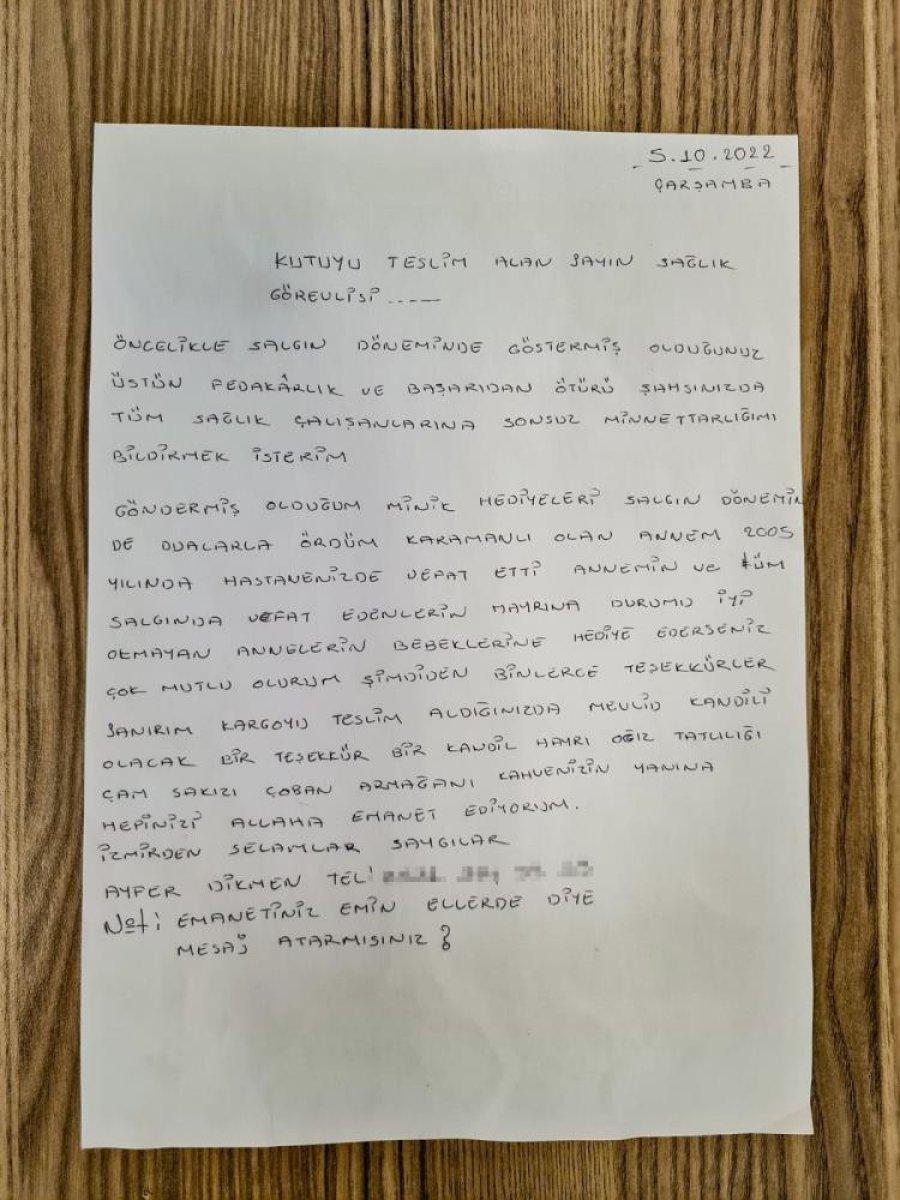 5.10.2022
ÇARŞAMBA
KUTUYU TESLİM ALAN SAYIN SAĞLIK
GÖREVLİSİ .....
ÖNCELİKLE SALGIN DÖNEMİNDE GÖSTERMİŞ OLDUĞUNUZ
ÜSTÜN FEDAKÂRLIK VE BAŞARIDAN ÖTÜRÜ ŞAHSINIZDA
TÜM SAĞLIK ÇALIŞANLARINA SONSUZ MİNNETTARLIĞIMI
BİLDİRMEK İSTERİM
GÖNDERMİŞ OLDUĞUM MİNİK HEDİYELERİ SALGIN DÖNEMİN
DE DUALARLA ÖRDÜM KARAMANLI OLAN ANNEM 2005
YILINDA HASTANENİZDE VEFAT ETTİ ANNEMİN VE TÜM
SALGINDA VEFAT EDENLERİN HAYRINA DURUMU İYİ
OLMAYAN ANNELERİN BEBEKLERİNE HEDİYE EDERSENİZ
ÇOK MUTLU OLURUM ŞİMDİDEN BİNLERCE TEŞEKKÜRLER
SANIRIM KARGOYU TESLİM ALDIĞINIZDA MEVLİD KANDİLİ
OLACAK BİR TEŞEKKÜR BİR KANDİL HAYRI AĞIZ TATLILIĞI
ÇAM SAKIZI ÇOBAN ARMAĞANI KAHVENİZİN YANINA
HEPİNİZİ ALLAHA EMANET EDİYORUM.
İZMİRDEN SELAMLAR SAYGILAR
AYFER DİKMEN TEL:
NOT: EMANETİNİZ EMİN ELLERDE DİYE
MESAJ ATARMISINIZ ?